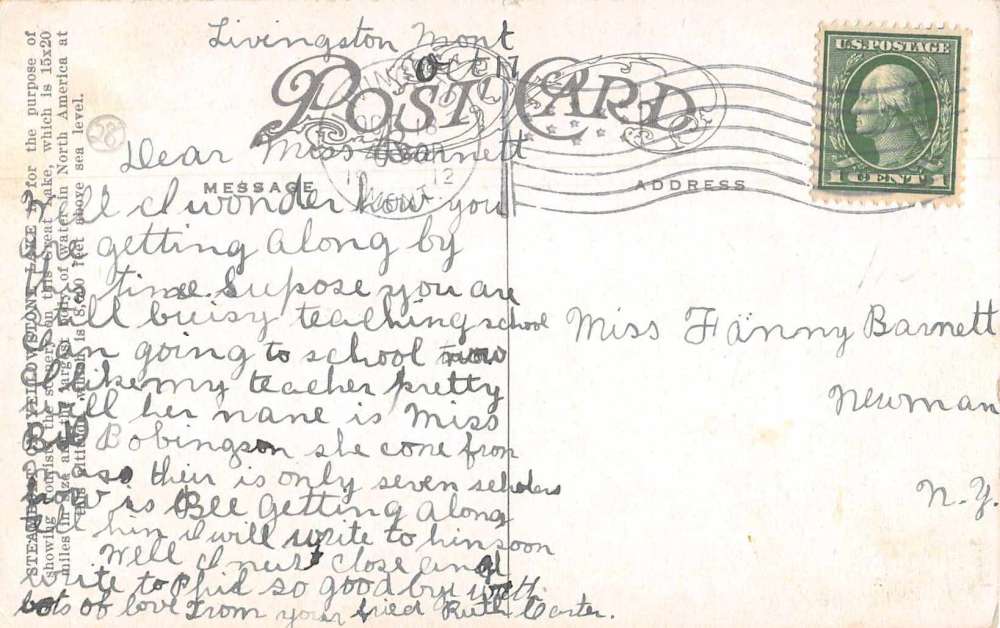 Livingston Mont
Oct 17
POST CARD
Dear Miss Barnett
MESSAGE
ADDRESS
U.S. POSTAGE
1 CENT 1
MONT.
12
Well I wonder how you
getting along by
time. Supose you are
still buisy teaching school
I am going to school now
I like my teacher pretty
well her nane is Miss
Bobingson she come fron
their is only seven scholers
How is Bee Getting along
tell him I will write to him soon
Well I must close and
write to Phid so good bye with
lots of love From your fried Ruth Carter.
Miss Fanny Barnett
Newman
N.Y.
28
STEAMBOAT ON YELLOWSTONE LAKE for the purpose of
showing tourists the scenery on this Great Lake, which is 15x20
miles in size and the largest body of water in North America at
this altitude which is 8,000 feet above sea level.